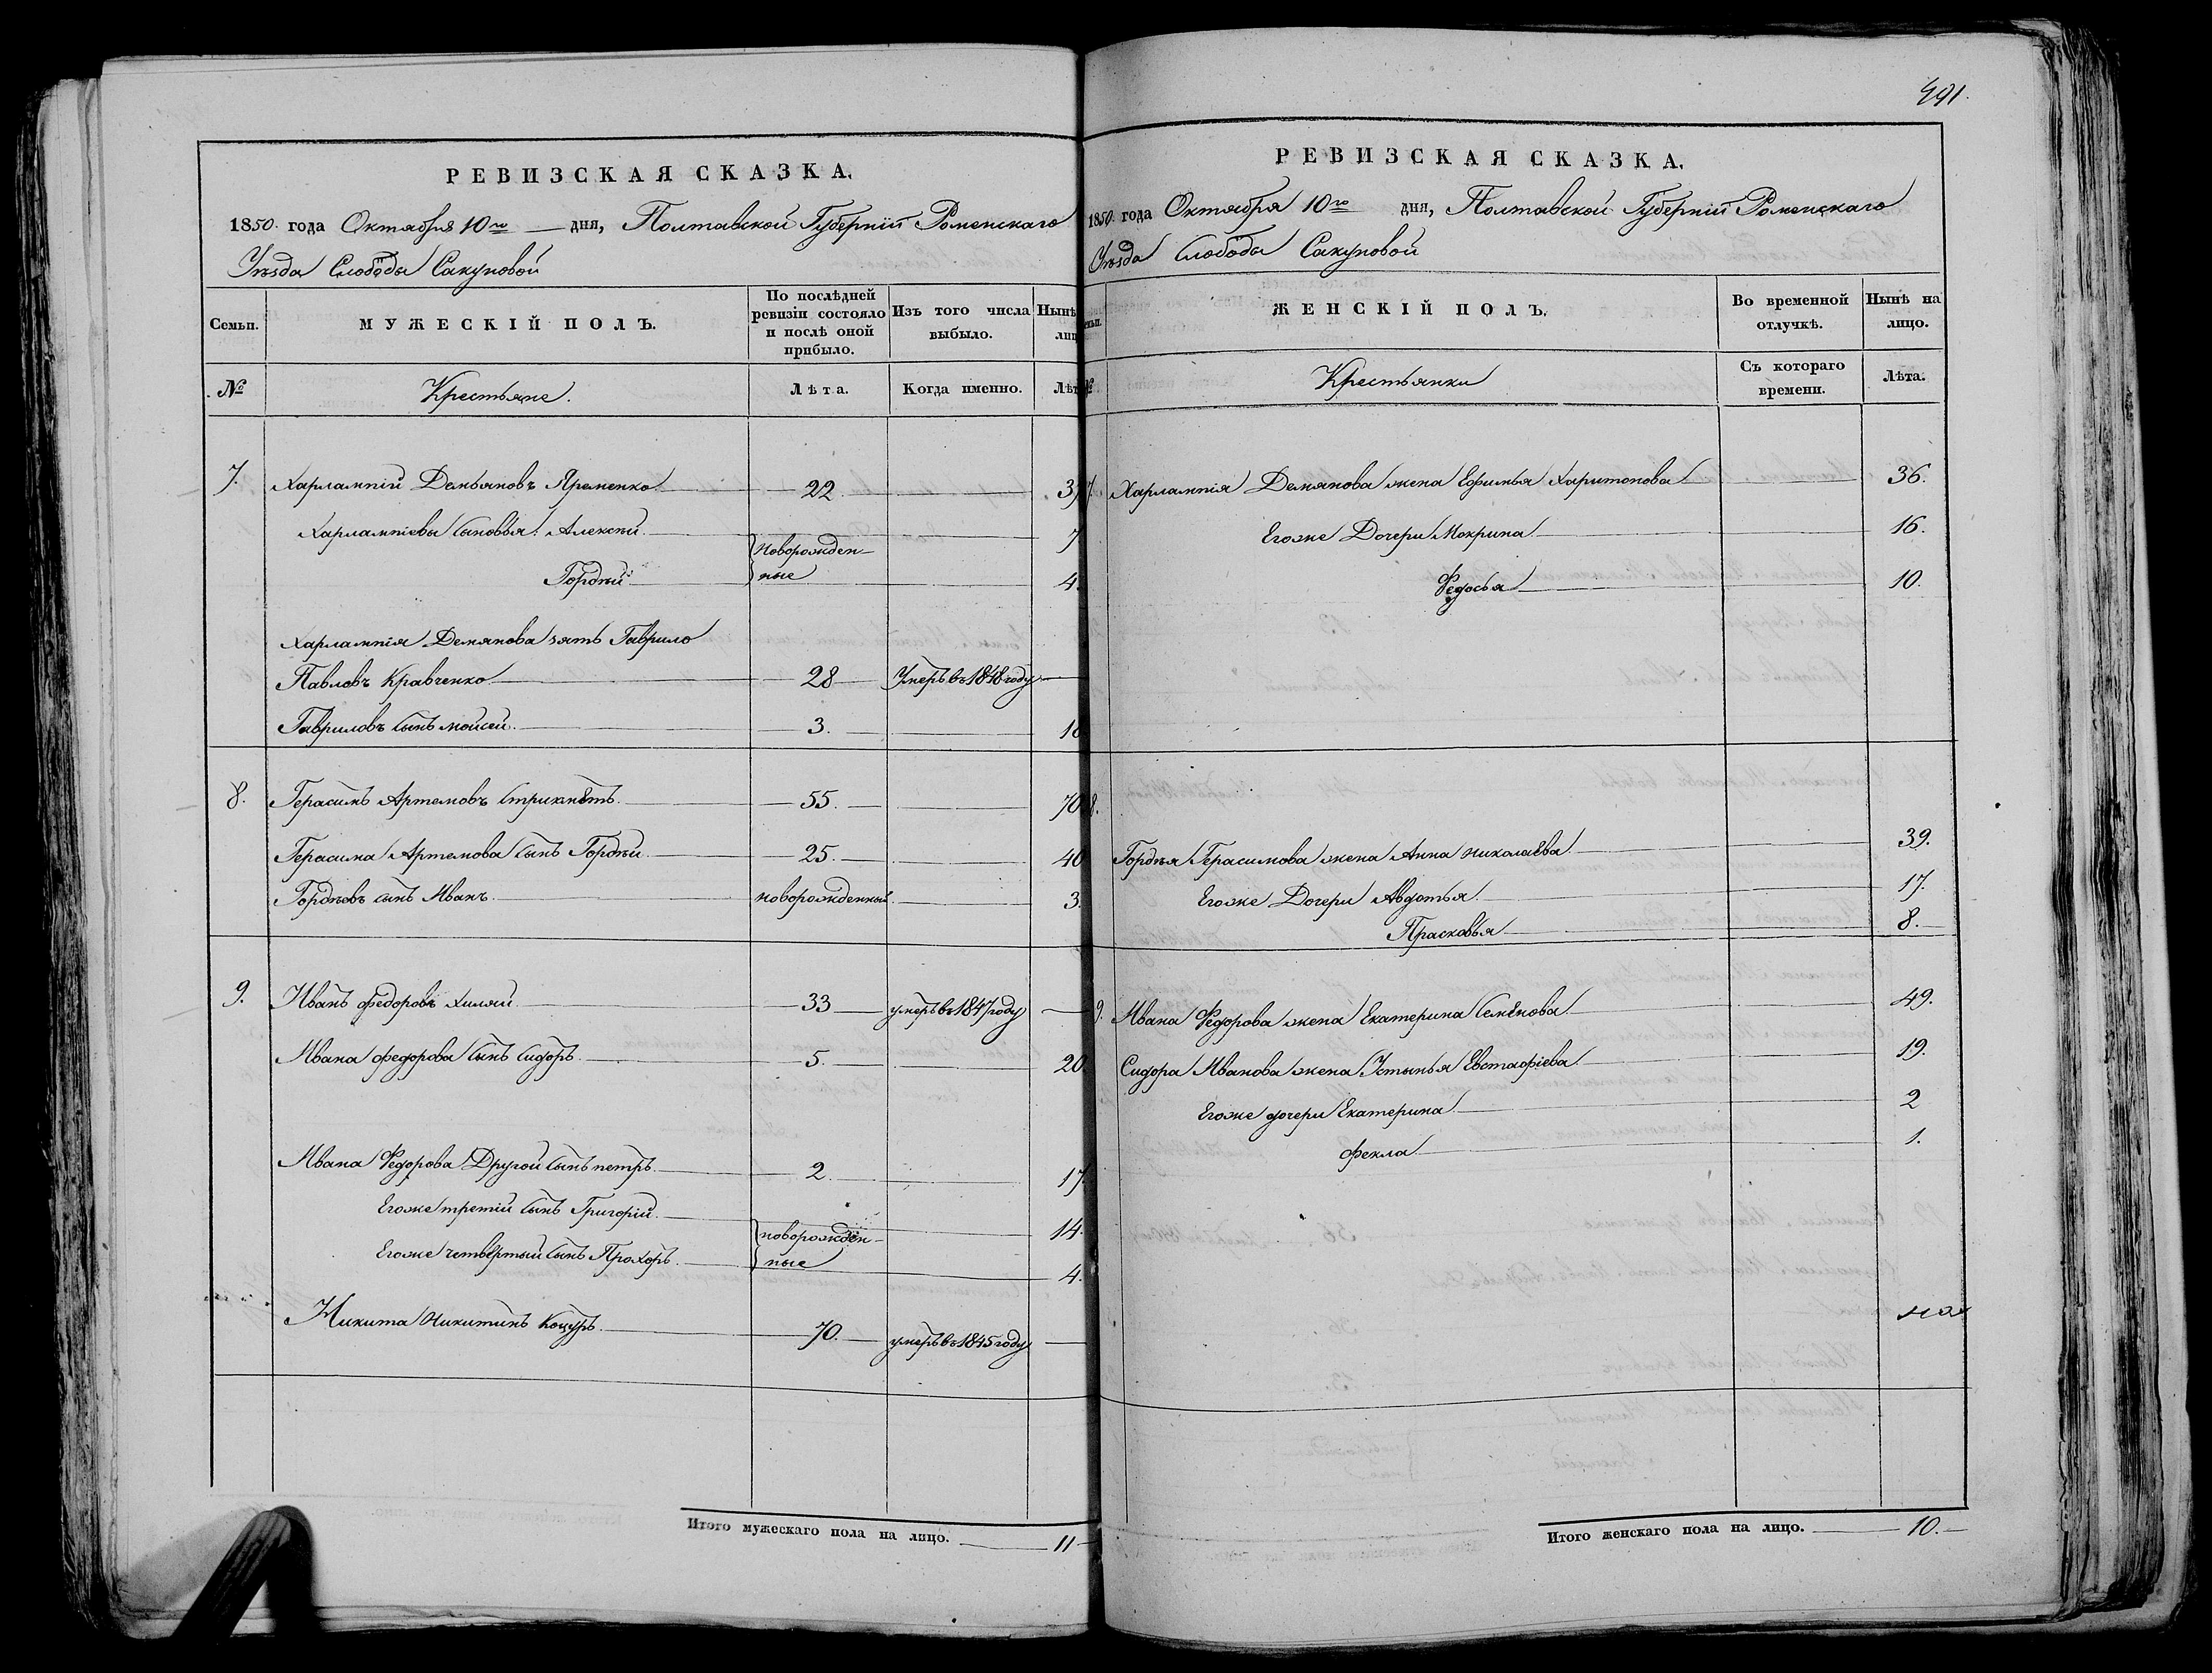 РЕВИЗСКАЯ СКАЗКА.
1850. года Октября 10го дня, Полтавской Губернїи Роменскаго
Уѣзда Слободы Сакуновой
Семьи.
МУЖЕСКІЙ ПОЛЪ.
По послѣдней ревизіи состояло и послѣ оной прибыло.
Изъ того числа выбыло.
Нынѣ
№
Крестьяне.
Лѣта.
Когда именно.
7. Харлампій Демьяновъ Яременко 22.
Харлампіевы сыновья: Алексѣй 7
Новорожден-
ные
Гордѣй 4.
Харлампія Демянова зять Гаврило
Павловъ Кравченко 28 Умеръ въ 1848 году
Гавриловъ сынъ Мойсей. 3.
8. Герасимъ Артемовъ 55. 70
Герасима Артемова сынъ Гордѣй 25. 40
Гордѣевъ сынъ Иванъ новорожденный. 3.
9. Иванъ Федоровъ 33 умеръ въ 1847 году
Ивана Федорова сынъ Сидоръ 5. 20
Ивана Федорова Другой сынъ Петръ 2. 17.
Егоже третій сынъ Григорій 14.
новорожден-
ные
Егоже четвертый сынъ Прохоръ 4.
Никита Никитинъ Коцуръ 70. умеръ въ 1845 году
Итого мужескаго пола на лицо. 11
491.
РЕВИЗСКАЯ СКАЗКА.
1850. года Октября 10го дня, Полтавской Губернїи Роменскаго
Уѣзда Слободы Сакуновой
ЖЕНСКІЙ ПОЛЪ.
Во временной отлучкѣ.
Нынѣ на лицо.
№
Крестьянки
Съ котораго времени.
Лѣта.
7. Харлампія Демянова жена Ефимья Харитонова 36.
Егоже Дочери Мокрина 16.
Федосья 10.
8.
Гордѣя Герасимова жена Анна Николаева 39.
Егоже Дочери Авдотья 17.
Прасковья 8.
9. Ивана Федорова жена Екатерина Семенова 49.
Сидора Иванова жена Устынья Евстафіева 19.
Егоже дочери Екатерина 2
Фекла 1.
Итого женскаго пола на лицо. 10.